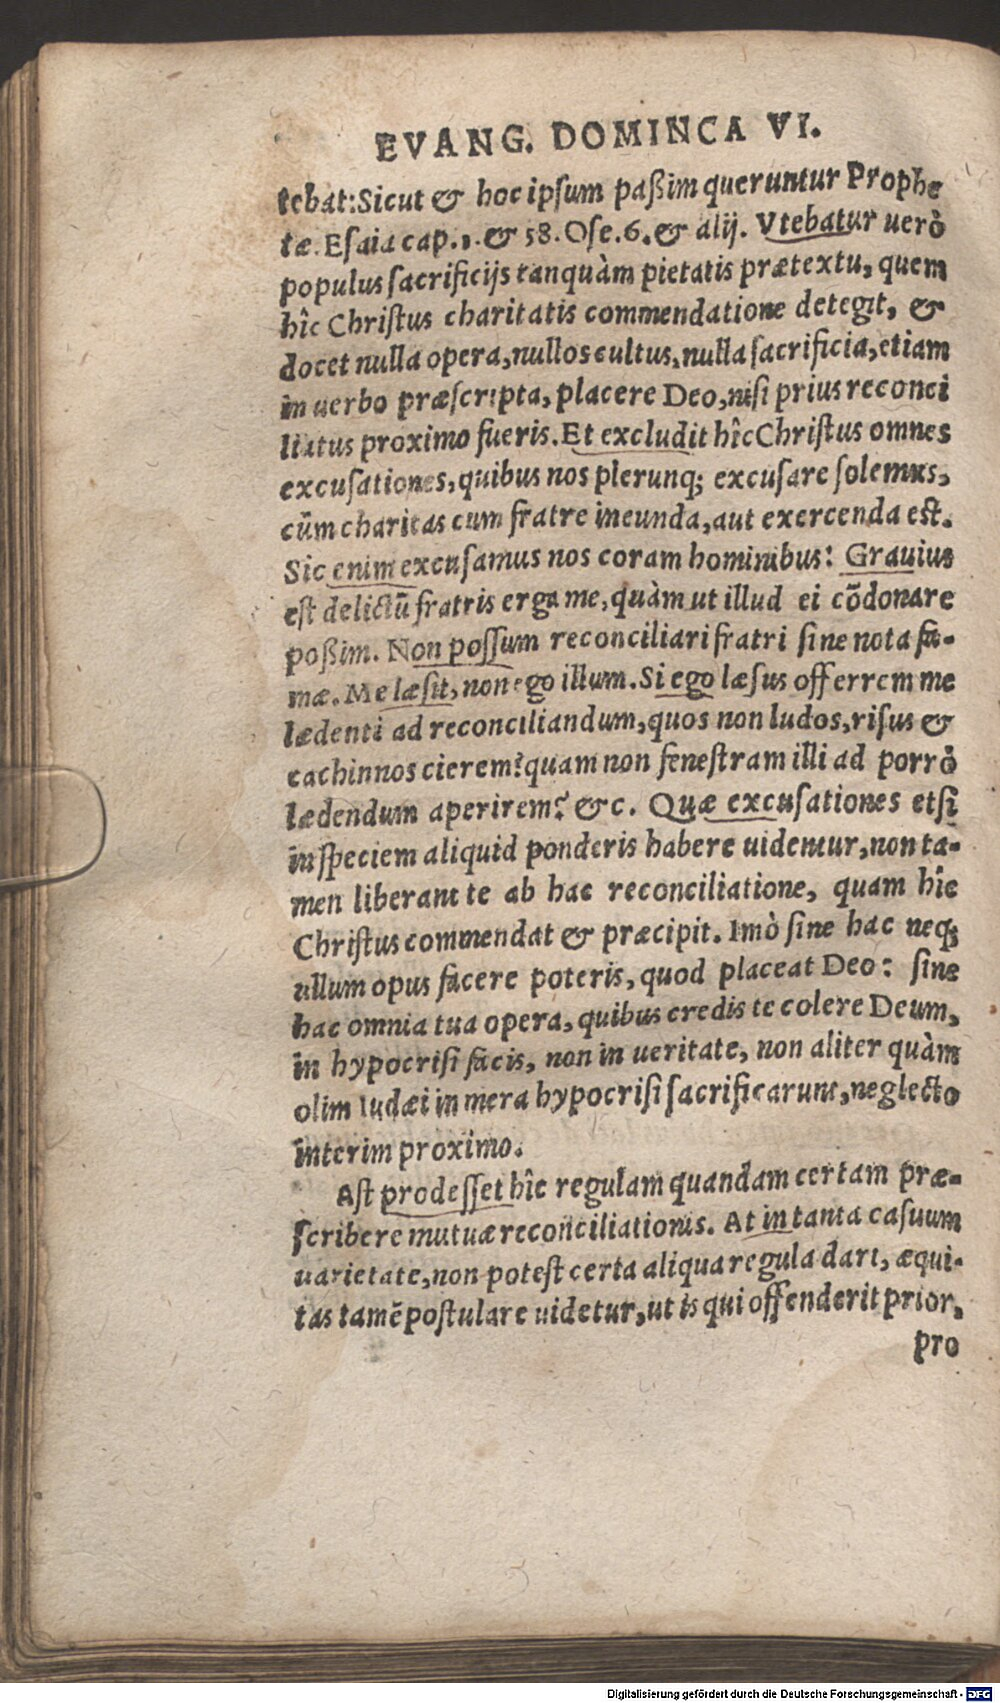 EVANG. DOMINCA VI.
tebat: Sicut & hoc ipsum paßim queruntur Prophe
tæ. Esaia cap. 1. & 58. Ose. 6. & alij. Vtebatur uerò
populus sacrificijs tanquàm pietatis prætextu, quem
hîc Christus charitatis commendatione detegit, &
docet nulla opera, nullos cultus, nulla sacrificia, etiam
in uerbo præscripta, placere Deo, nisi prius reconci
liatus proximo fueris. Et excludit hîc Christus omnes
excusationes, quibus nos plerunq; excusare solemus,
cũm charitas cum fratre ineunda, aut exercenda est.
Sic enim excusamus nos coram hominibus: Grauius
est delictũ fratris erga me, quàm ut illud ei cõdonare
poßim. Non possum reconciliari fratri sine nota fa-
mæ. Me læsit, non ego illum. Si ego læsus offerrem me
lædenti ad reconciliandum, quos non ludos, risus &
cachinnos cierem? quam non fenestram illi ad porrò
lædendum aperirem? &c. Quæ excusationes etsi
in speciem aliquid ponderis habere uidentur, non ta-
men liberant te ab hac reconciliatione, quam hîc
Christus commendat & præcipit. Imò sine hac neq;
ullum opus facere poteris, quod placeat Deo: sine
hac omnia tua opera, quibus credis te colere Deum,
in hypocrisi facis, non in ueritate, non aliter quàm
olim Iudæi in mera hypocrisi sacrificarunt, neglecto
interim proximo.
Ast prodesset hîc regulam quandam certam præ-
scribere mutuæ reconciliationis. At in tanta casuum
uarietate, non potest certa aliqua regula dari, æqui-
tas tamẽ postulare uidetur, ut is qui offenderit prior,
pro
Digitalisierung gefördert durch die Deutsche Forschungsgemeinschaft - DFG